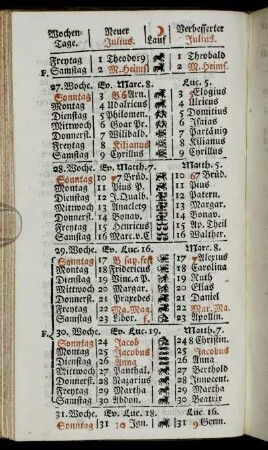 Wochen- Neuer Verbesserter
Tage. Julius. Lauf Julius.
Freytag 1 Theodor9 1 Theobald
F. Samstag 2 M. Heims. 2 M. Heims.
27. Woche. Ev. Marc. 8. Luc. 5.
Sonntag 3 B 6 Arn. 3 Elogius
Montag 4 Udalricus 4 Ulricus
Dienstag 5 Philomen. 5 Domitius
Mittwoch 6 Goar Pr. 6 Isaias
Donnerst. 7 Willibald. 7
Freytag 8 Kilianus 8 Kilianus
Samstag 9 Cyrillus 9 Cyrillus
28. Woche. Ev. Matth. 7. Matth. 5.
Sonntag 10 7 Brüd. 10 7 Brüd.
Montag 11 Pius P. 11 Pius
Dienstag 12 J. Gualb. 12 Patern.
Mittwoch 13 Anaclet9 13 Margar.
Donnerst. 14 Bonav. 14 Bonav.
Freytag 15 Henricus 15 Ap. Theil
Samstag 16 Mar. v. C 16 Walther.
29. Woche. Ev. Luc. 16. Marc. 8.
Sonntag 17 Scap. fest 17 Alexius
Montag 18 Fridericus 18 Carolina
Dienstag 19 Vinc. a P. 19 Ruth
Mittwoch 20 Margar. 20 Elias
Donnerst. 21 Praxedes 21 Daniel
Freytag 22 Ma. Mag. 22 Mar. Ma.
Samstag 23 Libor. 23 Apollin.
F. 30. Woche. Ev. Luc. 19. Matth. 7.
Sonntag 24 Jacob 24 8 Christin.
Montag 25 Jacobus 25 Jacobus
Dienstag 26 Anna 26 Anna
Mittwoch 27 Panthal. 27 Berthold
Donnerst. 28 Nazarius 28 Innocent.
Freytag 29 Martha 29 Martha
Samstag 30 Abdon. 30 Beatrix
31. Woche. Ev. Luc. 18. Luc. 16.
Sonntag 31 10 Ign. 31 9 Germ.